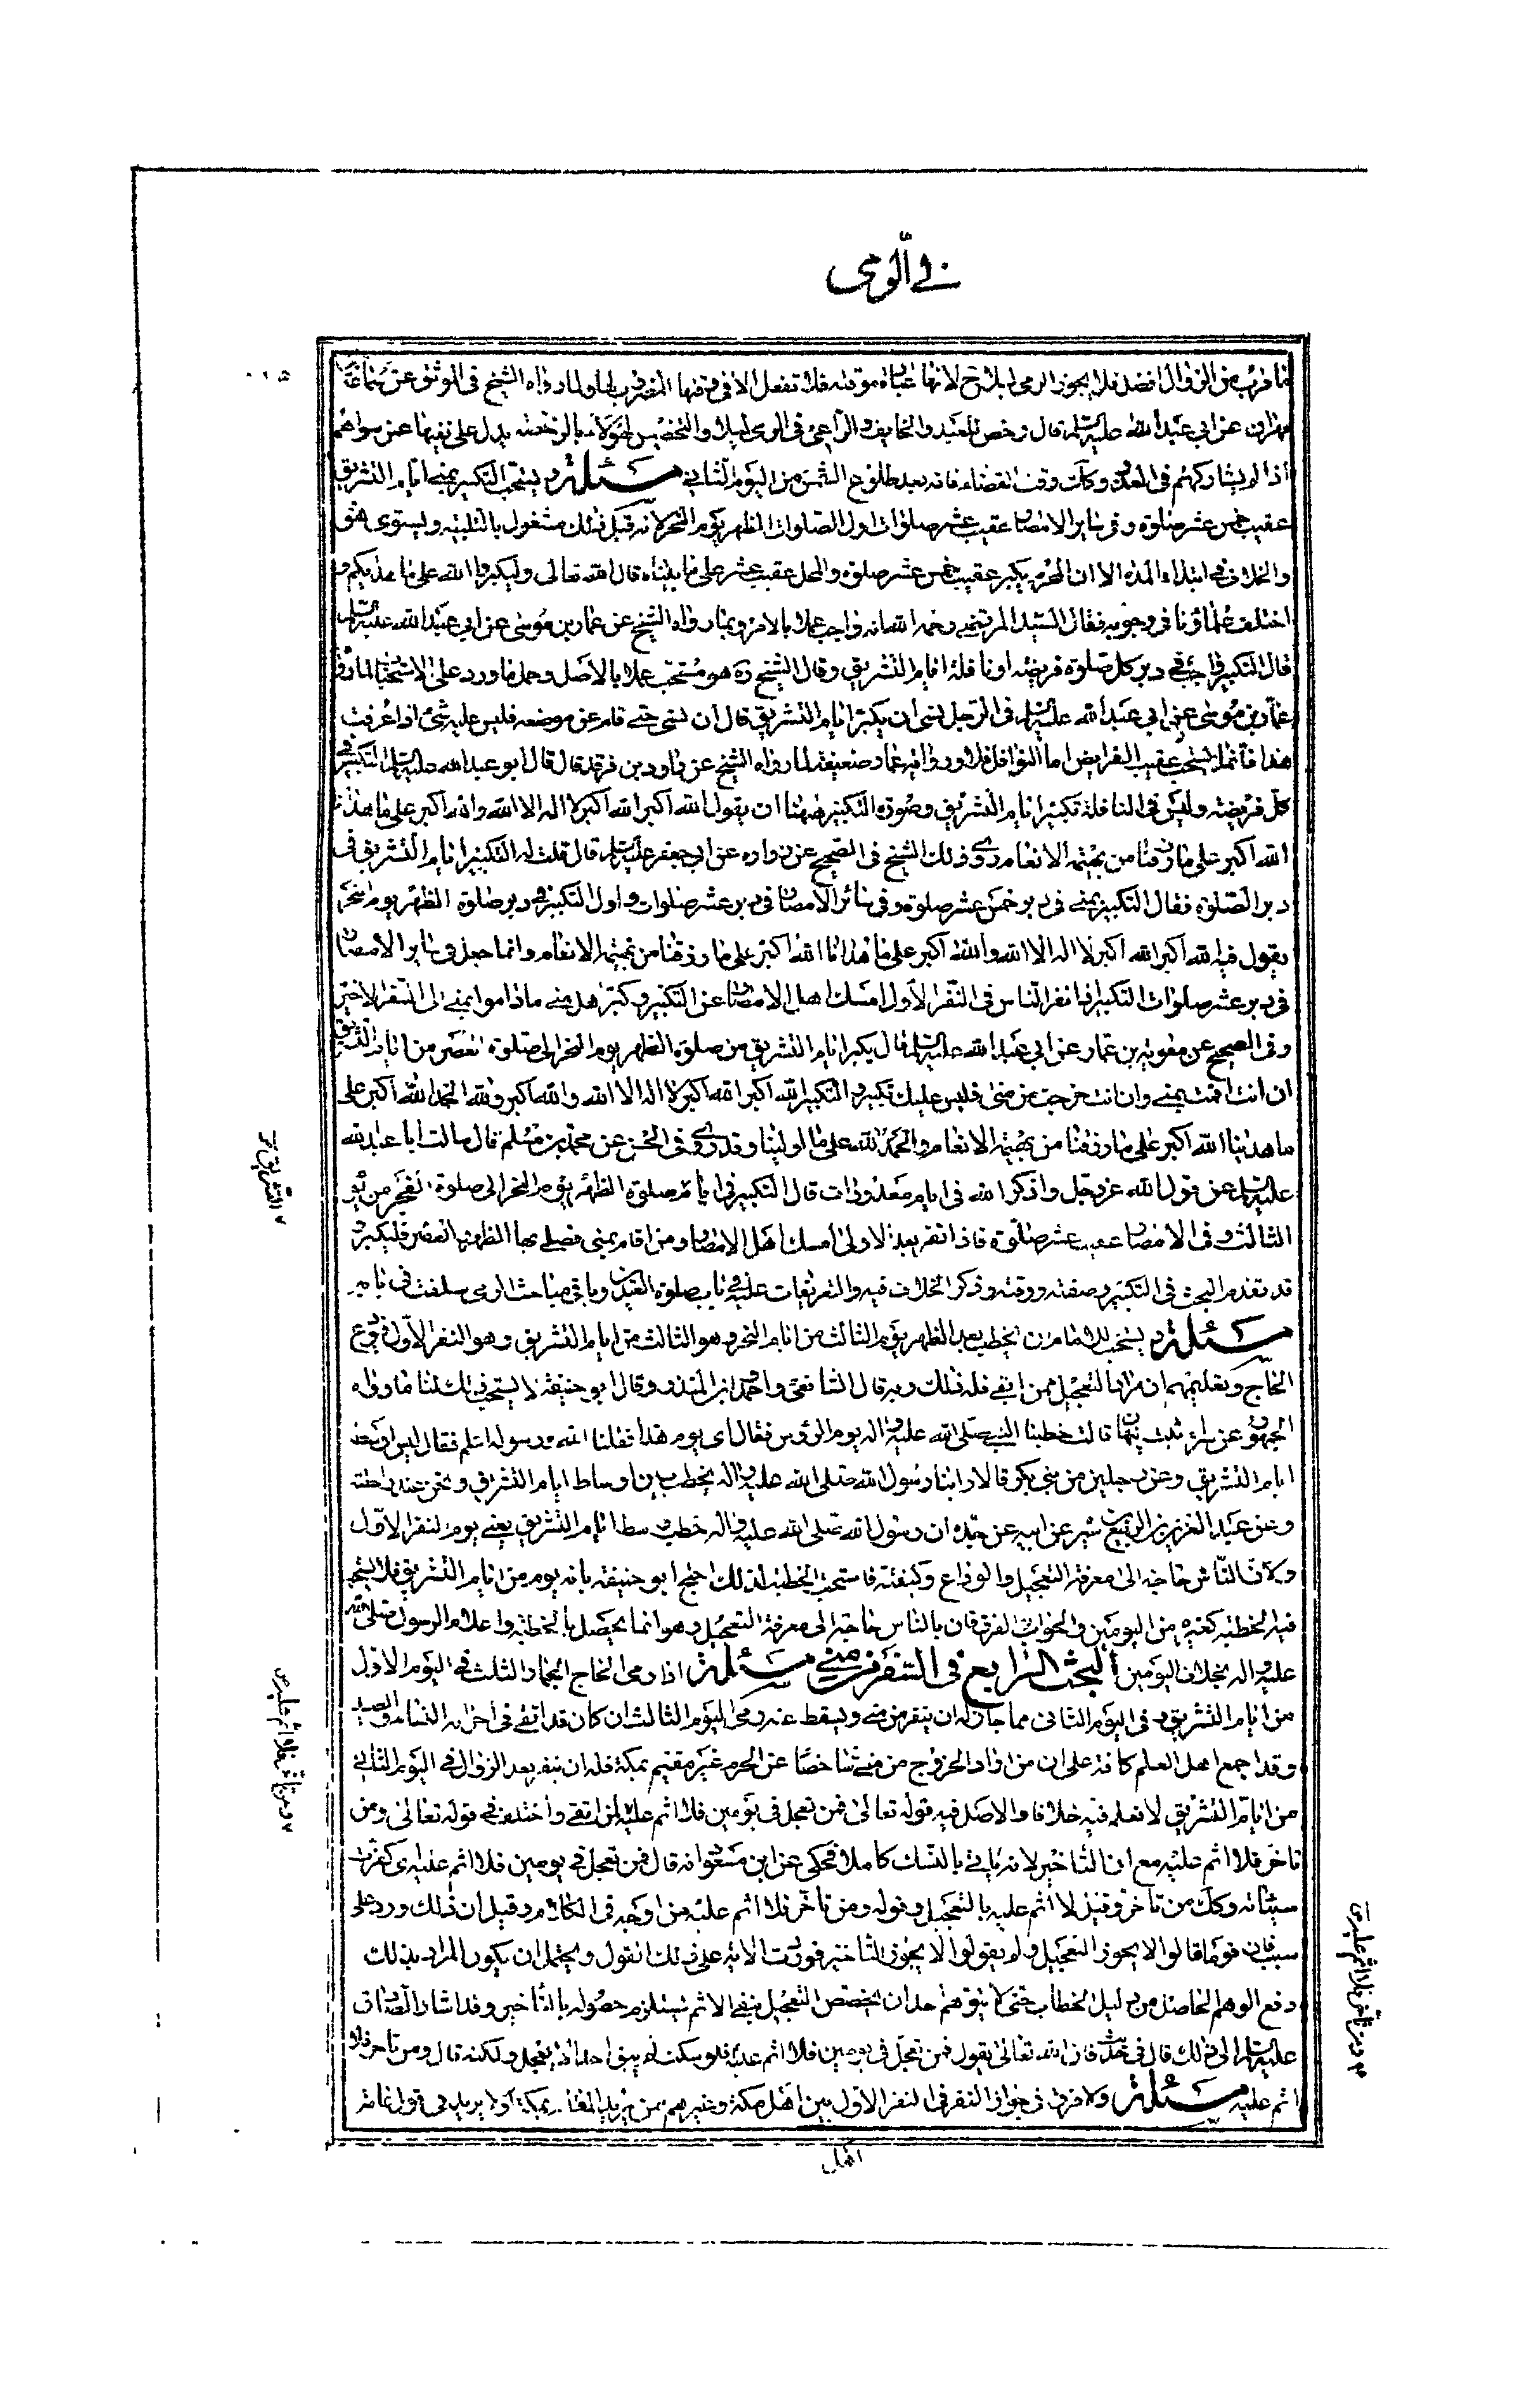 في الرمي
ما قرب من الزوال افضل فلا يجوز الرمي ليلا لانها عبادة موقتة فلا تفعل الا في وقتها المضروب لها ولما رواه الشيخ في الموثق عن سماعة بن
مهران عن ابي عبد الله عليه السلام قال رخص للعبد والخايف والراعي في الرمي ليلا والتخصيص لهؤلاء بالرخصة يدل على نفيها عن سواهم
اذا لم يشاركهم في العذر وكان وقت القضاء فانه بعد طلوع الشمس من اليوم الثاني مسئلة ويستحب التكبير بمنى ايام التشريق
عقيب خمس عشر صلوة وفي ساير الامصار عقيب عشر صلوات اول الصلوات الظهر يوم النحر لانه قبل ذلك مشغول بالتلبية ويستوي هو
والحلال في ابتداء المدة الا ان المحرم يكبر عقيب خمس عشر صلوة والمحل عقيب عشر على ما بيناه قال الله تعالى ولتكبروا الله على ما هديكم و
اختلف علماؤنا في وجوبه فقال السيد المرتضى رحمه الله انه واجب عملا بالامر وبما رواه الشيخ عن عمار بن موسى عن ابي عبد الله عليه السلام
قال التكبير واجب في دبر كل صلوة فريضة او نافلة ايام التشريق وقال الشيخ ره هو مستحب عملا بالاصل وحمل ما ورد على الاستحباب لما رواه
عمار بن موسى عن ابي عبد الله عليه السلام في الرجل نسي ان يكبر ايام التشريق قال ان نسي حتى قام عن موضعه فليس عليه شئ اذا عرفت
هذا فانما يستحب عقيب الفرايض اما النوافل فلا ورواية عمار ضعيفة لما رواه الشيخ عن داود بن فرقد قال قال ابو عبد الله عليه السلام التكبير في
كل فريضة وليس في النافلة تكبير ايام التشريق وصورة التكبير ههنا ان يقول الله اكبر الله اكبر لا اله الا الله والله اكبر على ما هدانا
الله اكبر على ما رزقنا من بهيمة الانعام روى ذلك الشيخ في الصحيح عن زرارة عن ابي جعفر عليه السلام قال قلت له التكبير ايام التشريق في
دبر الصلوة فقال التكبير بمنى في دبر خمس عشر صلوة وفي سائر الامصار في دبر عشر صلوات واول التكبير في دبر صلوة الظهر يوم النحر
يقول فيه الله اكبر الله اكبر لا اله الا الله والله اكبر على ما هدانا الله اكبر على ما رزقنا من بهيمة الانعام وانما جعل في ساير الامصار
في دبر عشر صلوات التكبير اذا نفر الناس في النفر الاول امسك اهل الامصار عن التكبير وكبر اهل منى ما داموا بمنى الى النفر الاخير
وفي الصحيح عن معوية بن عمار عن ابي عبد الله عليه السلام قال يكبر ايام التشريق من صلوة الظهر يوم النحر الى صلوة العصر من ايام التشريق
ان انت اقمت بمنى وان انت خرجت من منى فليس عليك تكبير والتكبير الله اكبر الله اكبر لا اله الا الله والله اكبر ولله الحمد الله اكبر على
ما هدينا الله اكبر على ما رزقنا من بهيمة الانعام والحمد لله على ما اولينا وقد روى في الحسن عن محمد بن مسلم قال سالت ابا عبد الله
عليه السلام عن قول الله عز وجل واذكروا الله في ايام معدودات قال التكبير في ايام صلوة الظهر يوم النحر الى صلوة الفجر من يوم
الثالث وفي الامصار عقيب عشر صلوة فاذا نفر بعد الاولى امسك اهل الامصار ومن اقام بمنى فصلى بها الظهر والعصر فليكبر
قد تقدم البحث في التكبير وصفته ووقته وذكر الخلاف فيه والتفريعات عليه في باب صلوة العيدين وباقي مباحث الرمي سلفت في بابه
مسئلة ويستحب للامام ان يخطب بعد الظهر يوم الثالث من ايام النحر وهو الثالث من ايام التشريق وهو النفر الاول
الحاج ويعلمهم ان من اراد التعجيل ممن اتقى فله ذلك وبه قال الشافعي واحمد وابن المنذر وقال ابو حنيفة لا يستحب ذلك لنا ما رواه
الجمهور عن سراء بنت نبهان قالت خطبنا النبي صلى الله عليه واله يوم الرؤس فقال اي يوم هذا فقلنا الله ورسوله اعلم فقال اليس اوسط
ايام التشريق وعن رجلين من بني بكر قالا راينا رسول الله صلى الله عليه واله يخطب بين اوساط ايام التشريق ونحن عند راحلته
وعن عبد العزيز بن الربيع بن سبرة عن ابيه عن جده ان رسول الله صلى الله عليه واله خطب وسط ايام التشريق يعني يوم النفر الاول
ولان الناس حاجة الى معرفة التعجيل والوداع وكيفيته فاستحب الخطبة لذلك احتج ابو حنيفة بانه يوم من ايام التشريق فلا يستحب
فيه الخطبة كغيره من اليومين والجواب الفرق فان بالناس حاجة الى معرفة التعجيل وهو انما يحصل بالخطبة واعلام الرسول صلى الله
عليه واله بخلاف اليومين البحث الرابع في النفر من منى مسئلة اذا رمى الحاج الجمار الثلث في اليوم الاول
من ايام التشريق وفي اليوم الثاني منها جاز له ان ينفر من منى ويسقط عنه رمي اليوم الثالث ان كان قد اتقى في احرامه النساء والصيد
وقد اجمع اهل العلم كافة على ان من اراد الخروج من منى شاخصا عن الحرم غير مقيم بمكة فله ان ينفر بعد الزوال في اليوم الثاني
من ايام التشريق لا نعلم فيه خلافا والاصل فيه قوله تعالى فمن تعجل في يومين فلا اثم عليه لمن اتقى واختلف في قوله تعالى ومن
تاخر فلا اثم عليه مع ان التاخير لانه ياتي بالنسك كاملا فحكي عن ابن مسعود انه قال فمن تعجل في يومين فلا اثم عليه اي كفرت
سيئاته وكذا من تاخر وقيل لا اثم عليه بالتعجيل وقوله ومن تاخر فلا اثم عليه مزاوجة في الكلام وقيل ان ذلك ورد على
سبب فان قوما قالوا لا يجوز التعجيل ولم يقولوا لا يجوز التاخير فوردت الاية على ذلك القول ويحتمل ان يكون المراد بذلك
دفع الوهم الحاصل من دليل الخطاب حتى لا يتوهم احد ان تخصيص التعجيل بنفي الاثم يستلزم حصوله بالتاخير وقد اشار الصادق
عليه السلام الى ذلك قال في حديث فان الله تعالى يقول فمن تعجل في يومين فلا اثم عليه فلو سكت لم يبق احد الا تعجل ولكنه قال ومن تاخر فلا
اثم عليه مسئلة ولا فرق في جواز النفر في النفر الاول بين اهل مكة وغيرهم ممن يريد المقام بمكة او لا يريد في قول عامة
اهل